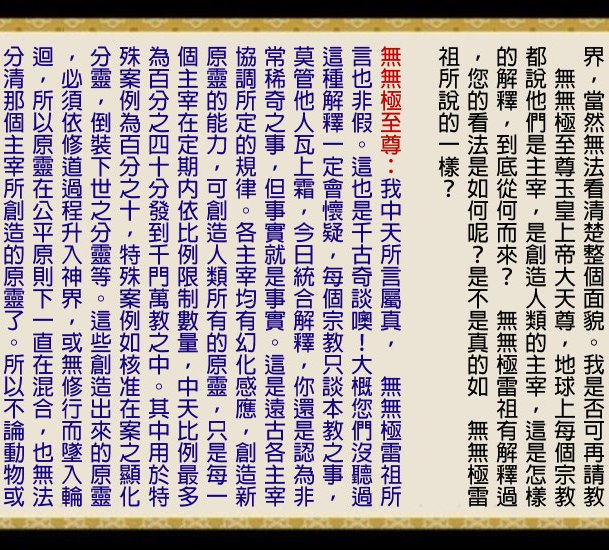 界，當然無法看清楚整個面貌。我是否可再請教
無無極至尊玉皇上帝大天尊，地球上每個宗教
都說他們是主宰，是創造人類的主宰，這是怎樣
的解釋，到底從何而來？　無無極雷祖有解釋過
，您的看法是如何呢？是不是真的如　無無極雷
祖所說的一樣？
無無極至尊：我中天所言屬真，　無無極雷祖所
言也非假。這也是千古奇談噢！大概您們沒聽過
這種解釋一定會懷疑，每個宗教只談本教之事，
莫管他人瓦上霜，今日統合解釋，你還是認為非
常稀奇之事，但事實就是事實。這是遠古各主宰
協調所定的規律。各主宰均有幻化感應，創造新
原靈的能力，可創造人類所有的原靈，只是每一
個主宰在定期內依比例限制數量，中天比例最多
為百分之四十分發到千門萬教之中。其中用於特
殊案例為百分之十，特殊案例如核准在案之顯化
分靈，倒裝下世之分靈等。這些創造出來的原靈
，必須依修道過程升入神界，或無修行而墜入輪
迴，所以原靈在公平原則下一直在混合，也無法
分清那個主宰所創造的原靈了。所以不論動物或